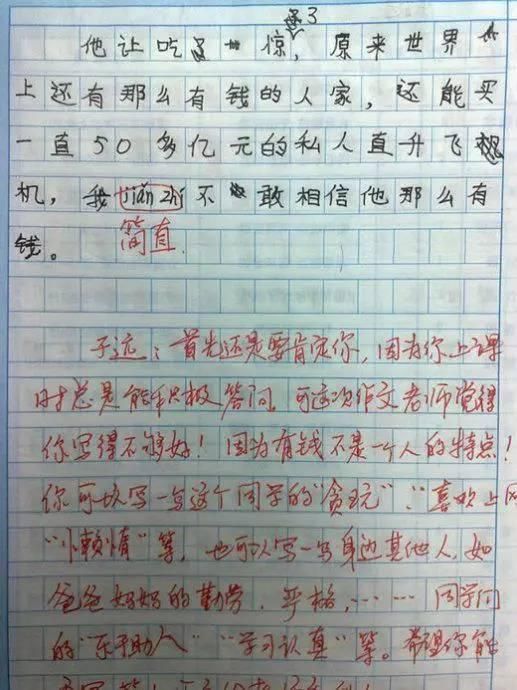 他让吃 一惊，原来世界
上还有那么有钱的人家，还能买
一直50多亿元的私人直升飞
机，我jiǎn zhí不敢相信他那么有
钱。 简直
子远：首先还是要肯定你，因为你上课
时总是能积极答问，可这次作文老师觉得
你写得不够好！因为有钱不是一个人的特点！
你可以写一写这个同学的"贪玩"、"喜欢上网
"小赖情"等，也可以写一写身边其他人，如
爸爸妈妈的勤劳、严格，……同学们
的"乐于助人""学习认真"等。希望你能